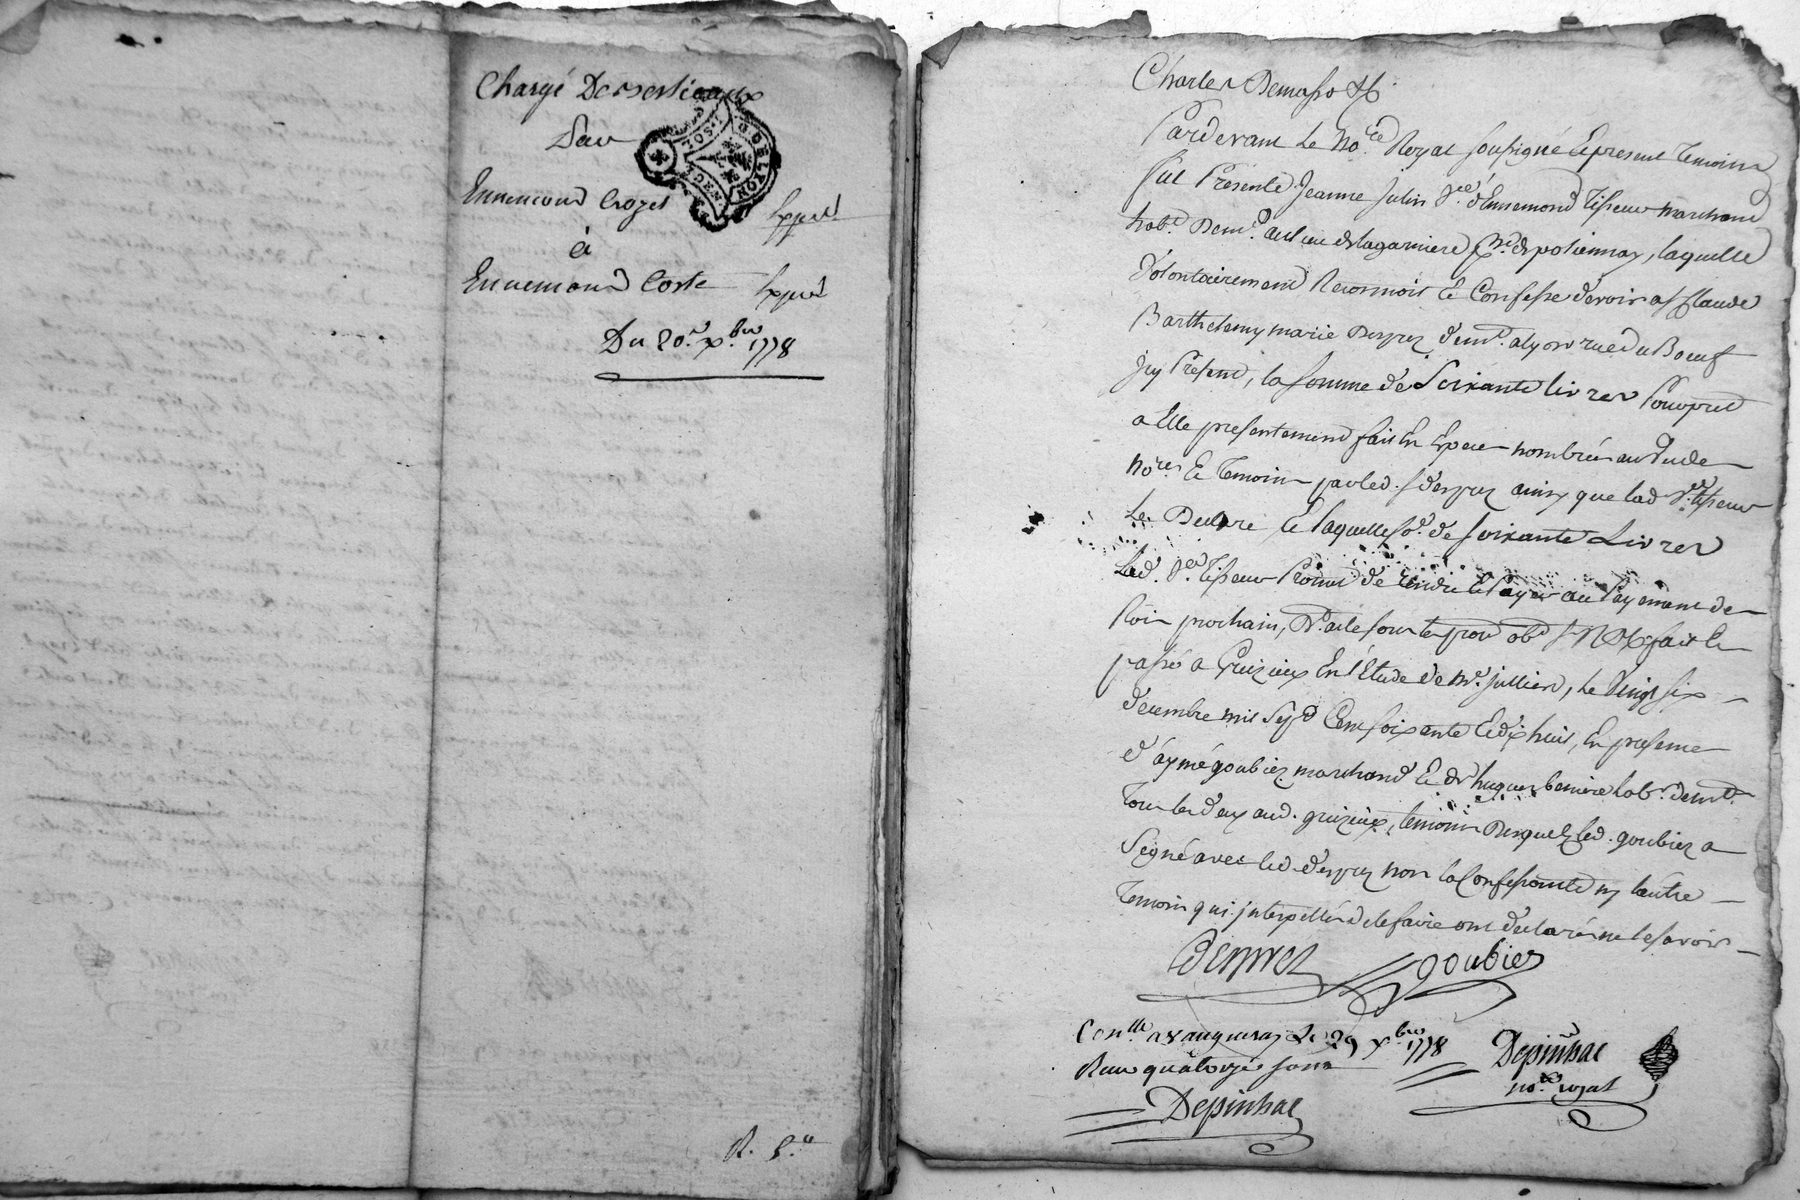 Chargé De bestieaux
Par
Ennemond Crozet Expert
à
Ennemond Coste Expert
Du 20.e xbre 1778
R. 5.s
G. DE LYON
1. SOL
Charles Demasso &c.
Pardevant Le No.re Royal soussigné et present temoins
fut Presente Jeanne Julin V.ve d'Ennemond tisseur marchand
hab.t Dem.t au lieu de lagarniere p.sse de polionnay, laquelle
volontairement Reconnoit et Confesse devoir a s.r Claude
Barthelemy marie Desprez dem.t a lyon rue du Boeuf
icy Present, la somme de Soixante livres pour pret
a Elle presentement fait En Espece nombrée au vu de
no.res et temoins par led. s. desprez ainsy que lad. V.ve tisseur
Le Declare et laquelle so.e de soixante Livres
lad. V.ve tisseur Promet de rendre et Payer au payement de
Rois prochain, D. acte sous les prom obl &c fait et
passé a Griezieux En l'Etude de M.e jullien, Le vingt six
decembre mil Sept Cent soixante et dix huit, En presence
d'aymé goubier marchand et de hugues berniere lab.r dem.t
tous les deux aud. griezieux, temoins Desquels led. goubier a
Signé avec led. desprez non la Confessante ny l'autre
temoin qui interpellés de le faire ont declaré ne le savoir
Desprez goubier
Con.llé a Vaugneray Le 29 xbre 1778
Reçu quatorze sous
Depinhac
Depinhac
no.re royal